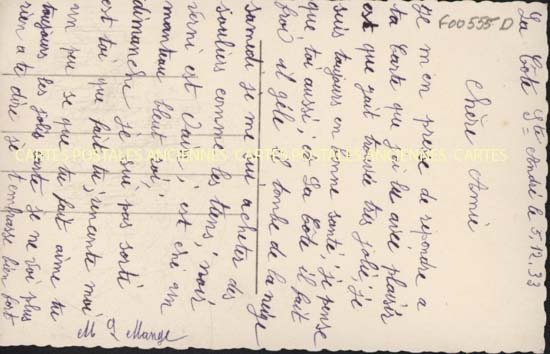 La Côte St= André le 5.12.33
Chère Amie
Je m en presse de répondre a
ta Carte que j'ai lu avec plaisir
est que j'ait trouvée très jolie, je
suis toujours en bonne santé, je pense
que toi aussi, La Côte il fait
froi il gèle il tombe de la neige
samedi je me sui acheter des
souliers comme les tiens, noir
verni est
manteau bleu roi,
dimanche je sui pas sorti
est toi que fait tu, raconte moi
un peu se que tu fait aime tu
toujours les jolie carte je ne voi plus
rien a te dire je t'embrasse bien fort
M G Mange
F00555D
CARTES POSTALES ANCIENNES CARTES POSTALES ANCIENNES CARTES